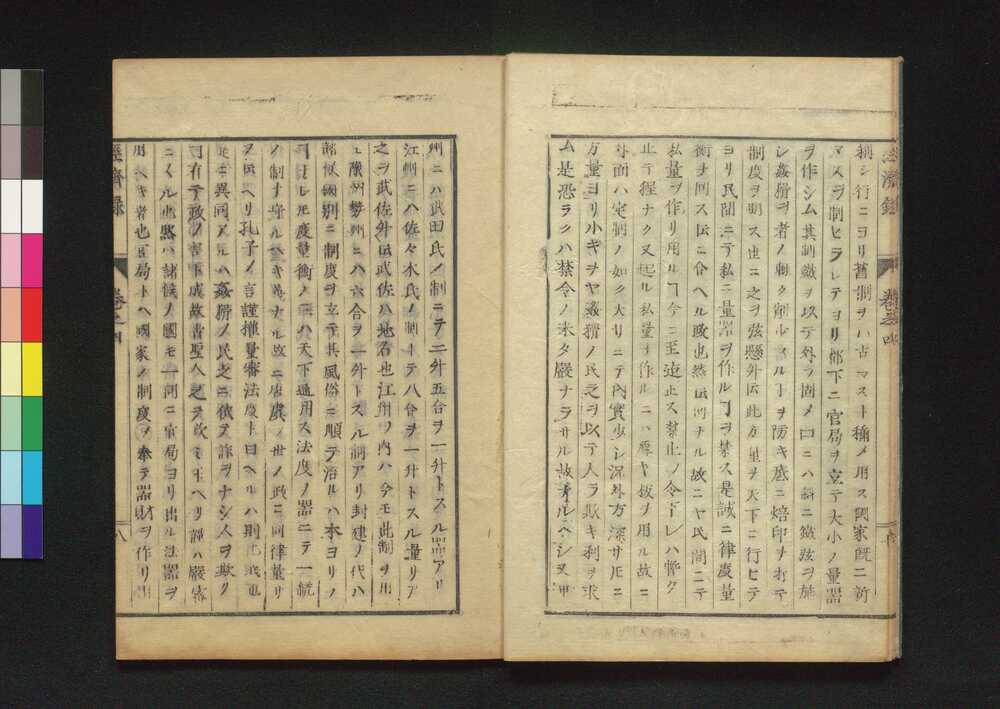 制シ行ニヨリ舊制ヲハ古マスト稱メ用ス國家既ニ新
マスヲ制ヒラレテヨリ都下ニ官局ヲ立テ大小ノ量器
ヲ作シム其制鐵ヲ以テ外ヲ固メ口ニハ斜ニ鐵弦ヲ施
シ姦猾ヲ者ノ剜ク削ルスルヿヲ防キ底ニ焙印ヲ打テ
制度ヲ明ス也ニ之ヲ弦懸升云此方量ヲ天下ニ行ヒテ
ヨリ民間ニテ私ニ量器ヲ作ルヿヲ禁ス是誠ニ律度量
衡ヲ同スト云ニ合ヘル政也然トモ ナル故ニヤ民間ニテ
私量ヲ作リ用ルヿ今ニ至迠止ス禁止ノ令下レハ暫ク
止テ程ナク又起ル私量ヲ作ルニハ 板ヲ用ル故ニ
外面ハ定制ノ如ク大リニテ内實少シ深升方深サ尺ニ
方量ヨリ小キヲヤ姦猾ノ民之ヲ以テ人ヲ欺キ利ヲ求
ム是恐ラクハ禁令ノ未タ嚴ナラサル故ナルヘシ又甲
經濟録 卷之四
州ニハ武田氏ノ制ニテ二升五合ヲ一升トスル器アリ
江州ニハ佐々木氏ノ制トテ八合ヲ一升トスル量リア
之ヲ武佐升云武佐ハ地名也江州ノ内ハ今モ此制ヲ用
ユ豫州勢州ニハ六合ヲ一升トスル制アリ封建ノ代ハ
諸侯國別ニ制度ヲ立テ其風俗ニ順テ治ルハ本ヨリノ
 ナレ 度量衡ノ ハ天下通用ス法度ノ器ニテ一統
ノ制ヲ守ルヘキ ナル故ニ唐虞ノ世ノ政ニ同律量リ
ヲ ヘリ孔子ノ言謹權量審法度ト曰ヘルハ則此 也
是ニ異同アルハ姦猾ノ民之ニ依テ詐ヲナシ人ヲ欺ク
 有テ政ノ害ト成故昔聖人之ヲ ミ玉ヘリ謹ハ嚴密
ニスル也然ハ諸侯ノ國モ一同ニ官局ヨリ出ル法器ヲ
用ヘキ者也官局トハ國家ノ制度ヲ奉テ器財ヲ作リ出
經濟録 卷之四 八